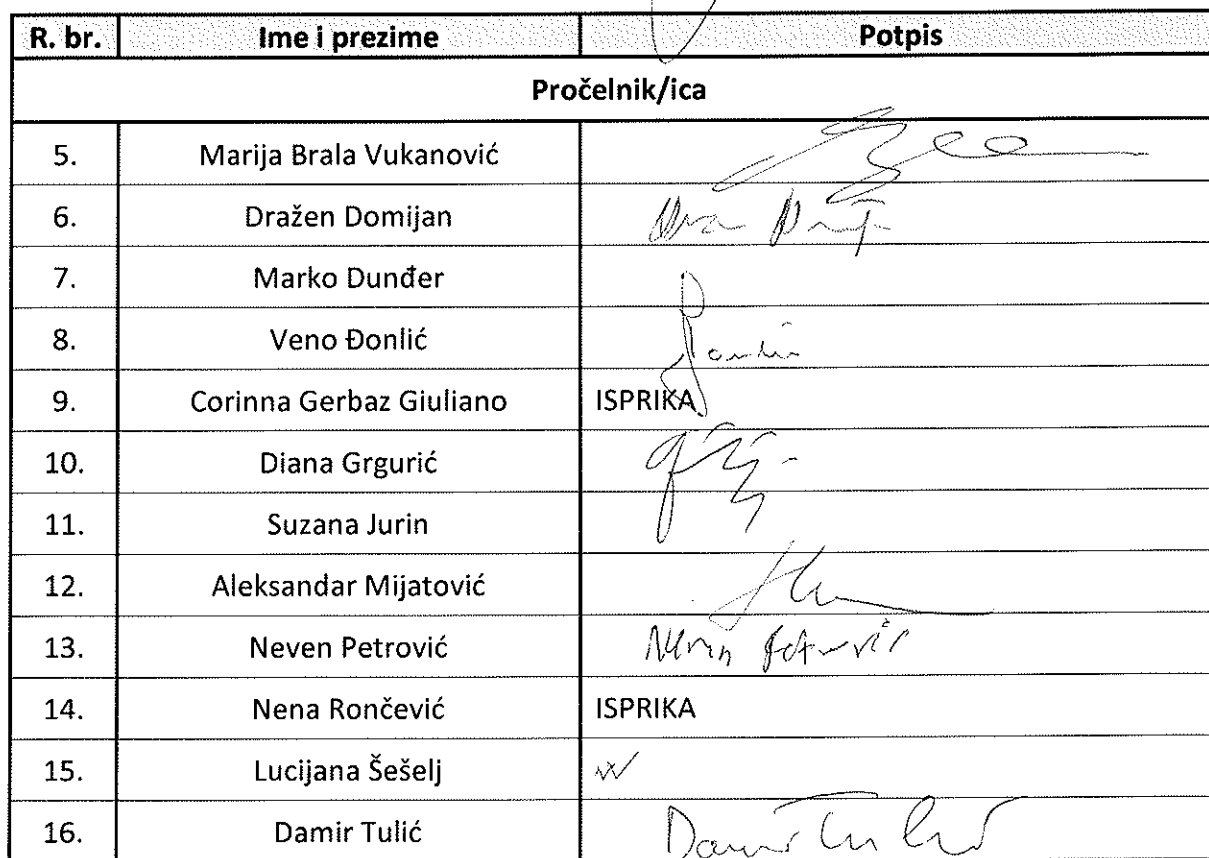 R. br. Ime i prezime Potpis
Pročelnik/ica
5. Marija Brala Vukanović
6. Dražen Domijan
7. Marko Dunđer
8. Veno Đonlić
9. Corinna Gerbaz Giuliano ISPRIKA
10. Diana Grgurić
11. Suzana Jurin
12. Aleksandar Mijatović
13. Neven Petrović Neven Petrović
14. Nena Rončević ISPRIKA
15. Lucijana Šešelj
16. Damir Tulić Damir Tulić